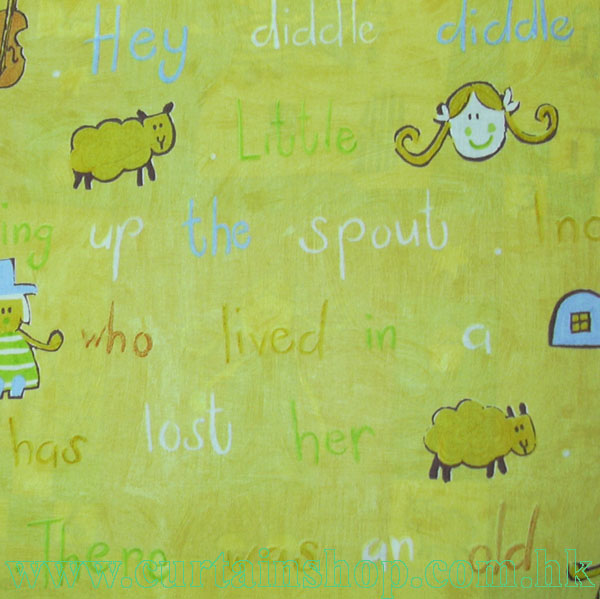 Hey diddle diddle
. Little
ing up the spout . Inc
who lived in a
has lost her
There was an old
www.curtainshop.com.hk